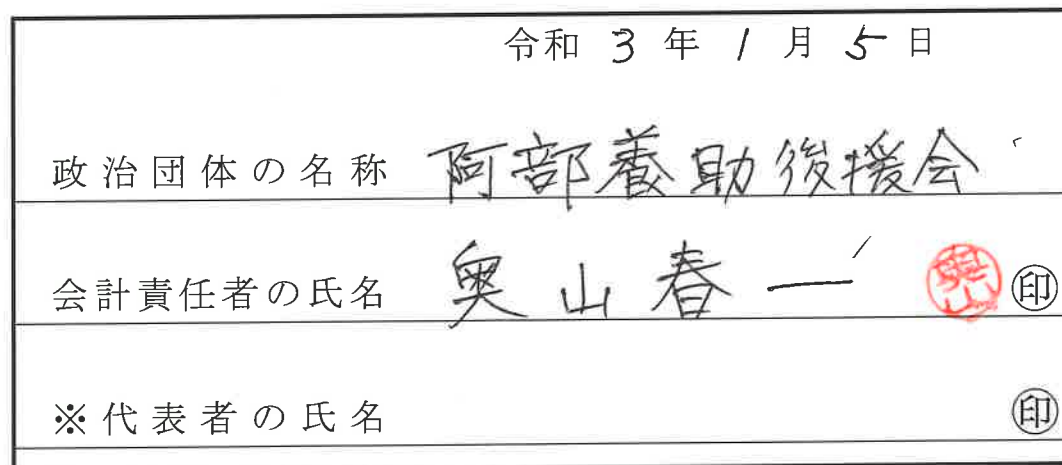 令和 3 年 1 月 5 日
政治団体の名称 阿部養助後援会
会計責任者の氏名 奥山春一 奥山 ㊞
※代表者の氏名 ㊞